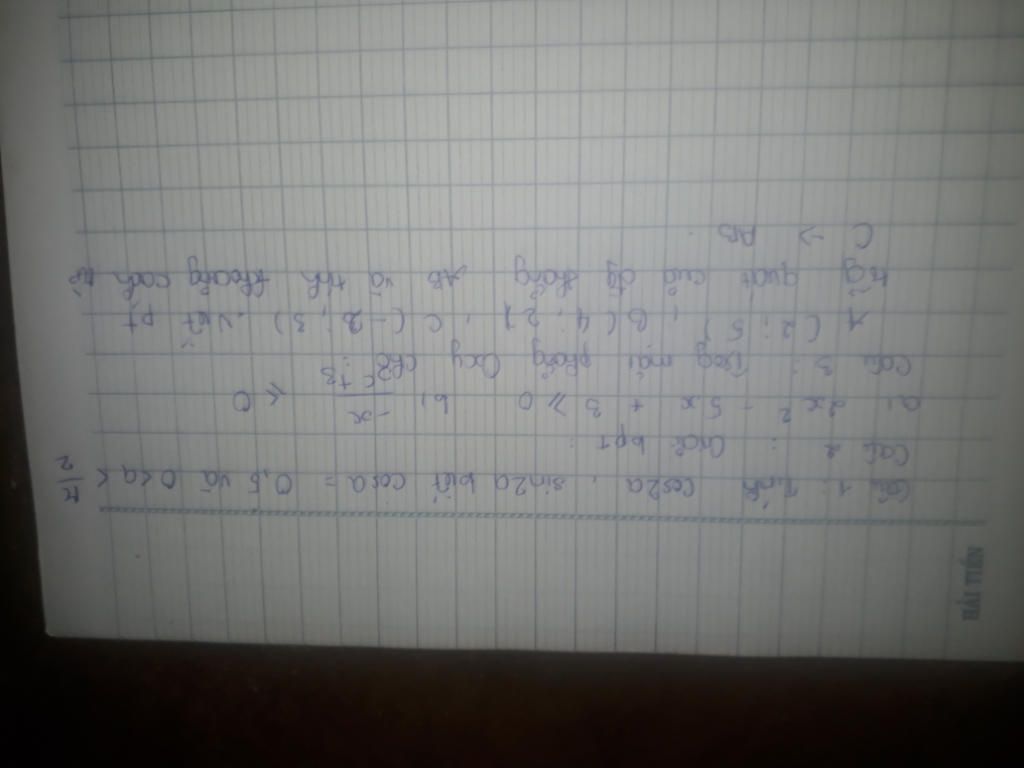 HẢI TIẾN
Câu 1: Tính cos2a, sin2a biết cosa = 0,5 và 0<a< π/2
Câu 2 : Giải bpt :
a, 2x² - 5x + 3 ≥ 0 b, -x + 3 ≤ 0
Câu 3 : Trog mặt phẳng Oxy cho :
(2 ; 5) , B(4 ; 2) , C(-3 ; 3) . Viết pt
tổg quát của đg thẳng AB và tính khoảng cách từ
C -> AB .